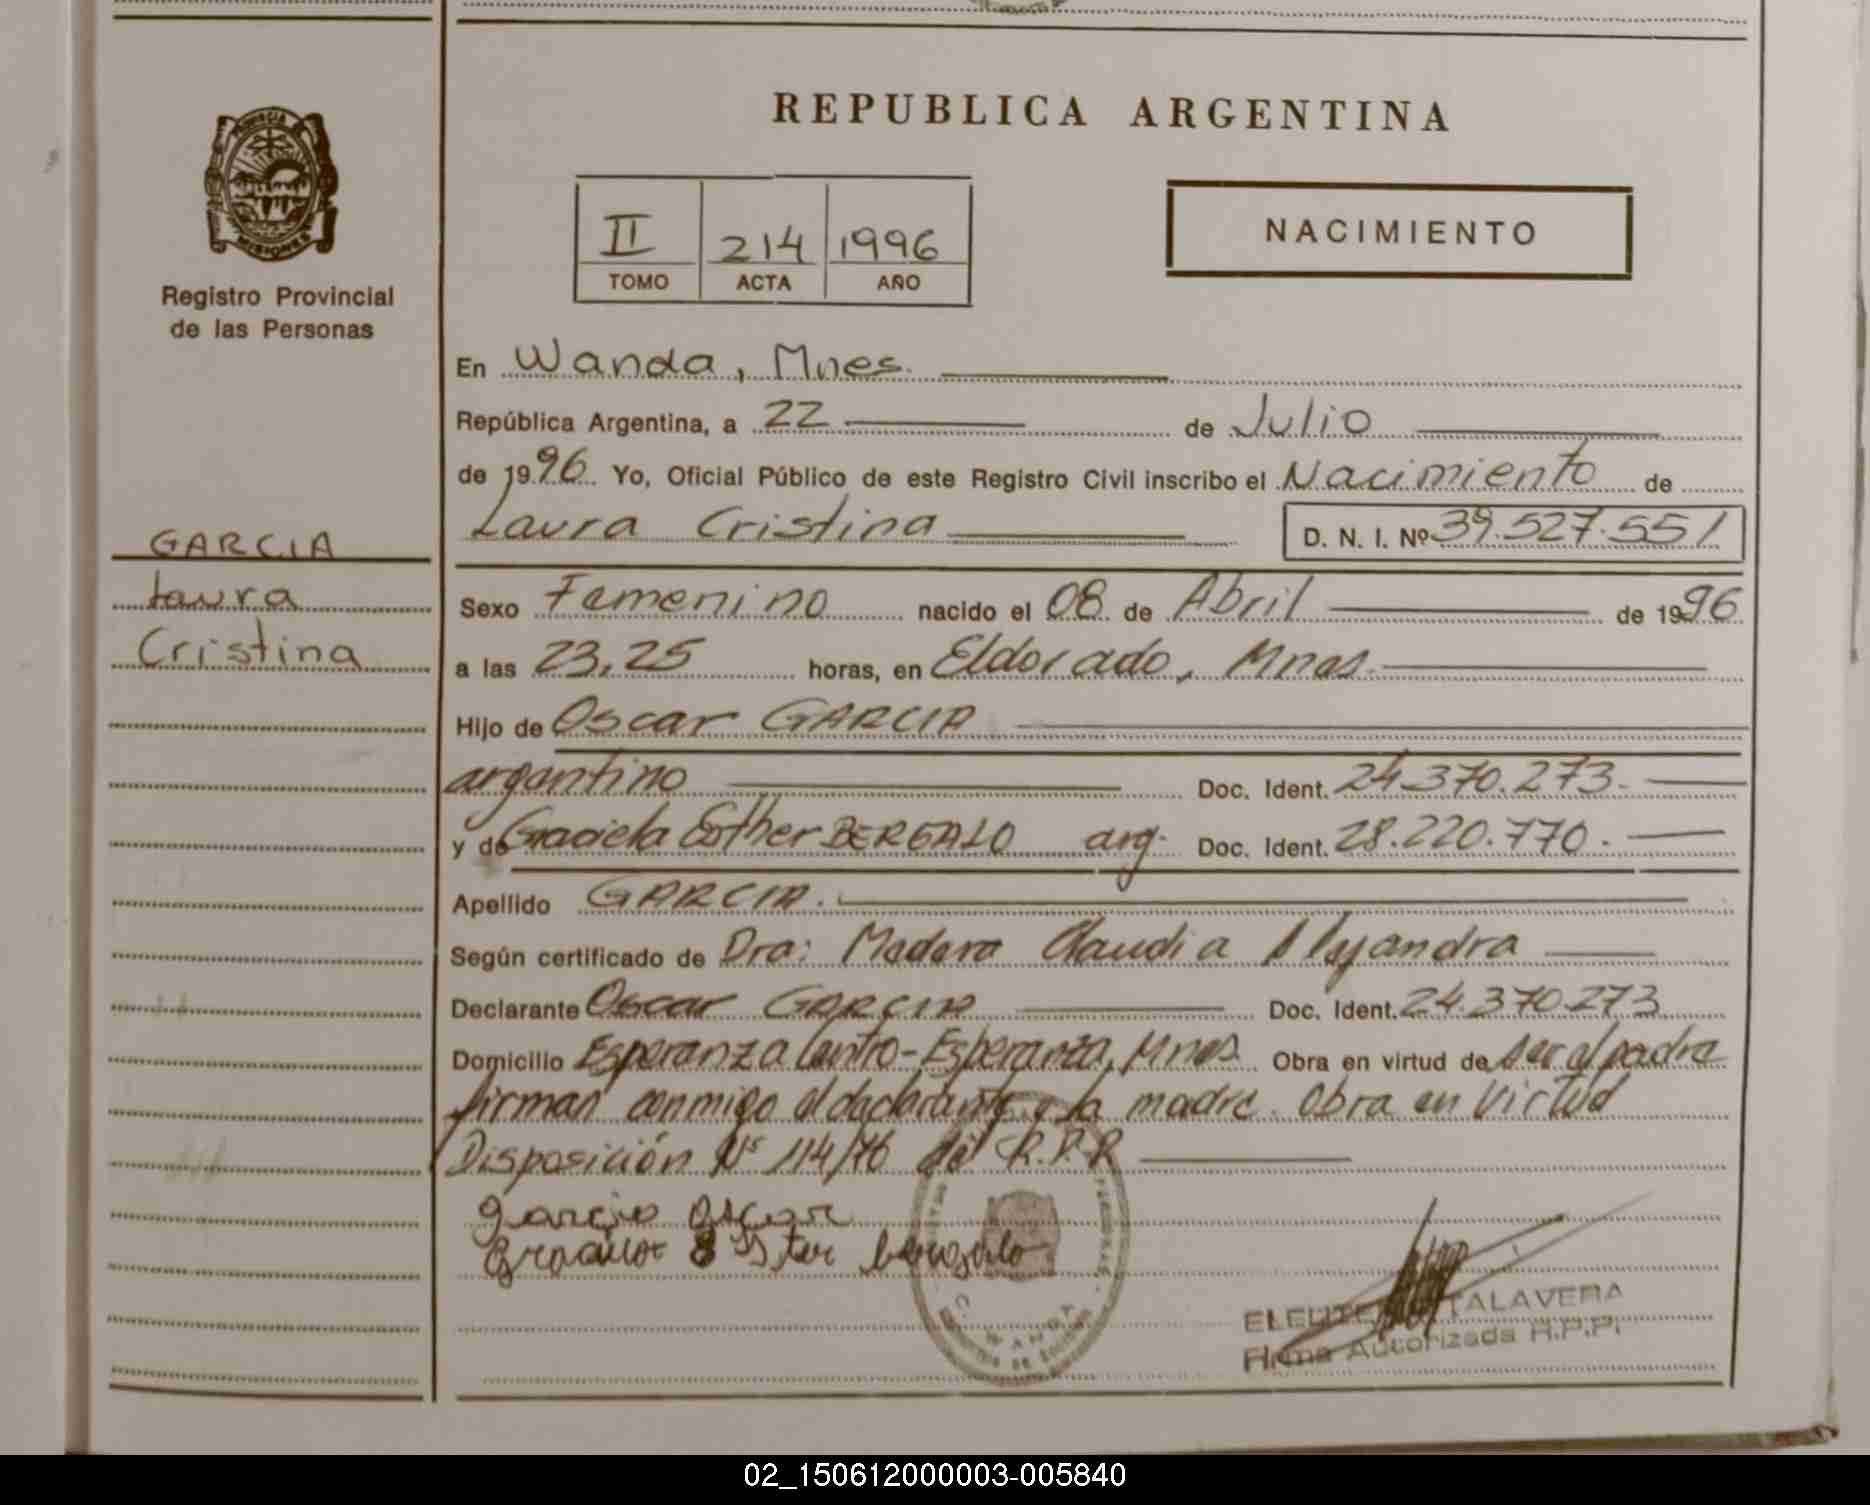 REPUBLICA ARGENTINA
PROVINCIA DE
MISIONES
Registro Provincial
de las Personas
II 214 1996
TOMO ACTA AÑO
NACIMIENTO
En Wanda, Mnes.
República Argentina, a 22 de Julio
de 1996 Yo, Oficial Público de este Registro Civil inscribo el Nacimiento de
Laura Cristina D. N. I. Nº 39.527.551
GARCIA
Laura
Cristina
Sexo Femenino nacido el 08 de Abril de 1996
a las 23,25 horas, en Eldorado, Mnes.
Hijo de Oscar GARCIA
argentino Doc. Ident. 24.370.273.
y de Graciela Esther BERGALO arg. Doc. Ident. 28.220.770.
Apellido GARCIA.
Según certificado de Dra: Madera Claudia Alejandra
Declarante Oscar GARCIA Doc. Ident. 24.370.273
Domicilio Esperanza Centro-Esperanza, Mnes. Obra en virtud de ser el padre
firman conmigo el declarante y la madre. Obra en Virtud
Disposición Nº 114/76 del R.P.P
garcia oscar
WANDA
ELEUTERIO TALAVERA
Firma Autorizada R.P.P.
02_150612000003-005840